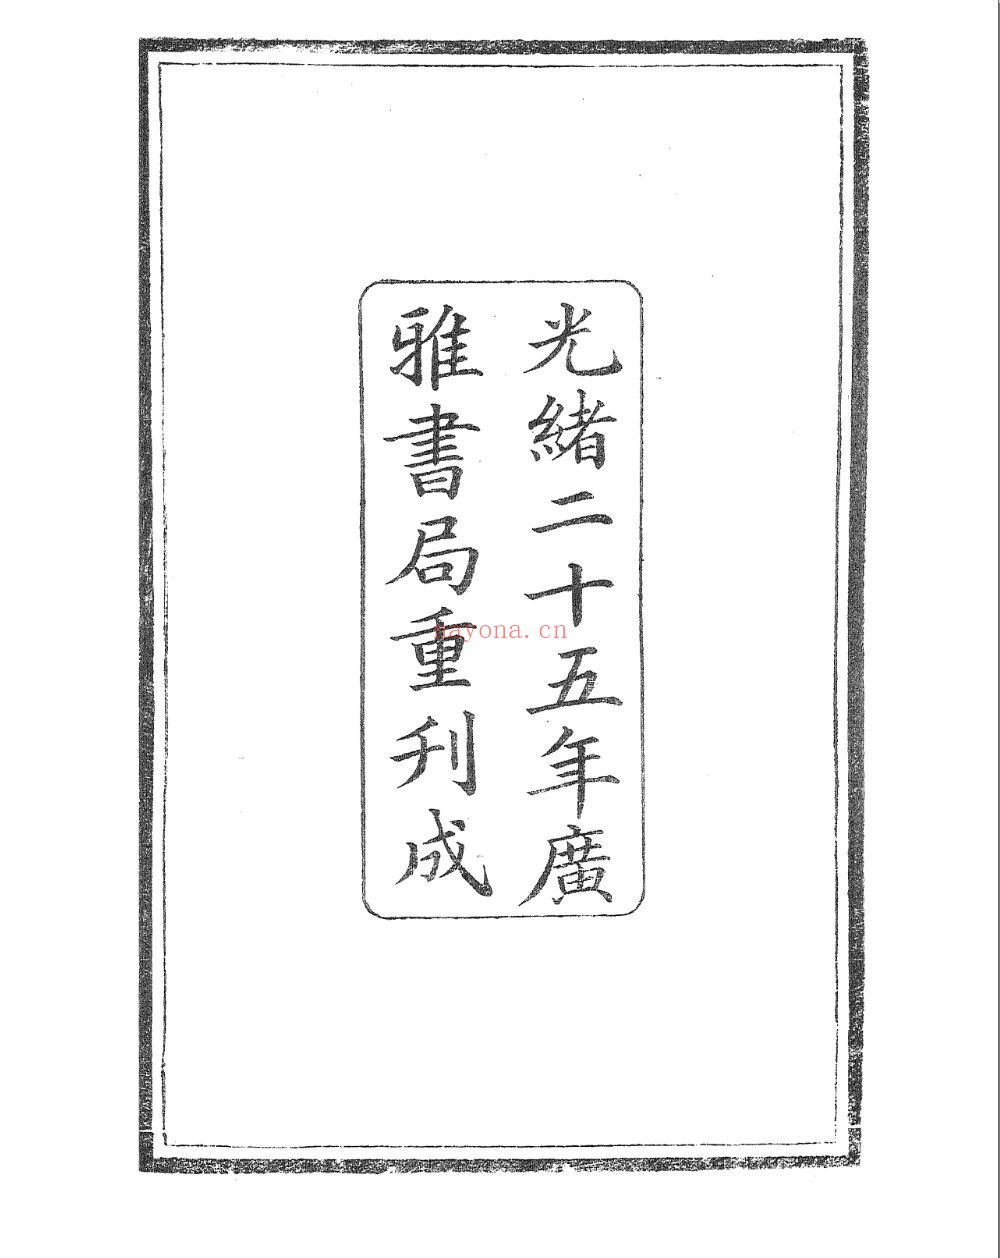 光緒二十五年廣
雅書局重刋成
nayona.cn